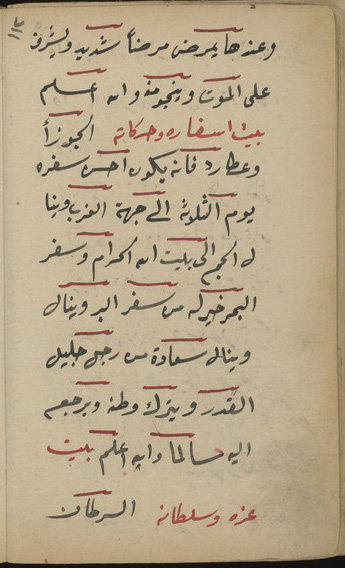 ١١٣
وعندها يمرض مرضاً شديد ويشرف
على الموت وينجو منه والله اعلم
بيت اسفاره وحركاته الجوزأ
وعطارد فانه يكون احسن سفره
يوم الثلاثة الى جهة الغرب وينا
ل الحج الى بيت الله الحرام وسفر
البحر خير له من سفر البر وينال
وينال سعادة من رجل جليل
القدر ويترك وطنه ويرجع
اليه سالما والله اعلم بيت
عزه وسلطانه السرطان